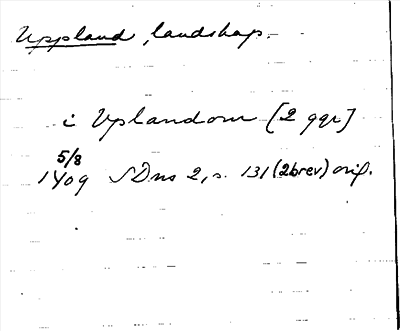 Uppland, landskap.
i Vplandom [2 ggr]
5/8
1409 SDns 2, s. 131 (2 brev) orig.